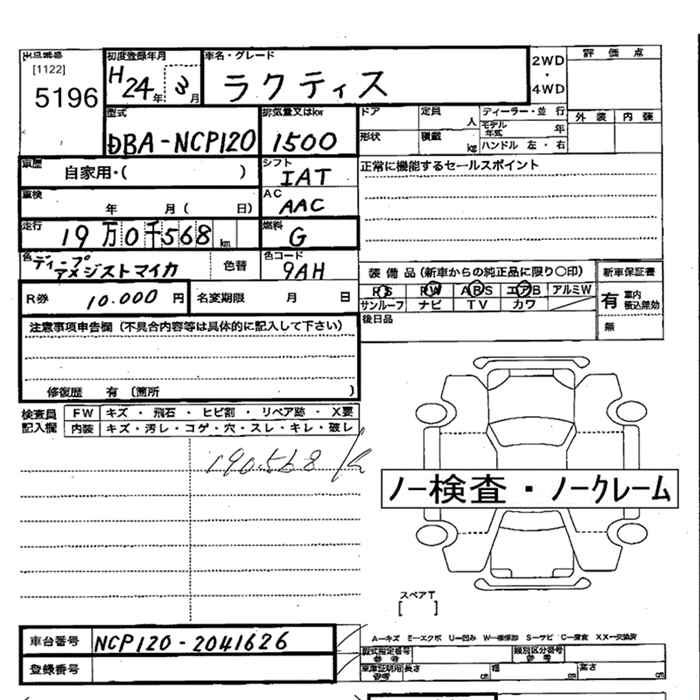 出品番号 初度登録年月 車名・グレード 2WD ・ 4WD 評価点
[1122] 5196 H24年3月 ラクティス 外装 内張
型式 排気量又はkw ドア 定員 人 ディーラー・並行
DBA-NCP120 1500 形状 積載 kg モデル年式 年
ハンドル 左・右
車歴 自家用・( ) シフト IAT 正常に機能するセールスポイント
車検 年 月( 日) AC AAC
走行 19万0千568km 燃料 G
色 ディープアメジストマイカ 色替 色コード 9AH 装備品(新車からの純正品に限り〇印) 新車保証書
R券 10.000円 名変期限 月 日 PS PW ABS エアB アルミW 有 車内積込無効
サンルーフ ナビ TV カワ
後日品 無
注意事項申告欄(不具合内容等は具体的に記入して下さい)
修復歴 有(箇所 )
検査員記入欄 FW キズ・飛石・ヒビ割・リペア跡・X要
内装 キズ・汚レ・コゲ・穴・スレ・キレ・破レ
190.568 K
ノー検査・ノークレーム
スペアT
[ ]
A-キズ E-エクボ U-凹み W-補修跡 S-サビ C-腐食 XX-交換済
車台番号 NCP120-2041626 型式指定番号 参考 類別区分番号 参考
登録番号 車庫証明用 参考 長さ cm 幅 cm 高さ cm